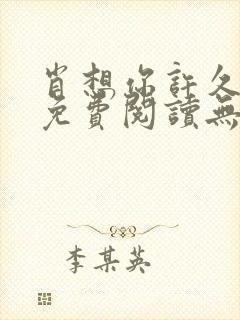 肖想你許久
免費閱讀無
李某英